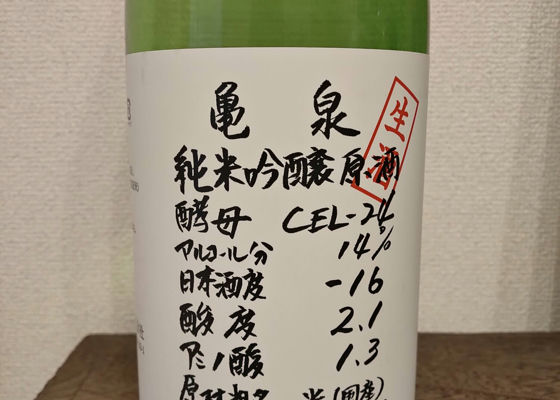 亀泉
生酒
純米吟醸原酒
酵母 CEL-24
アルコール分 14%
日本酒度 -16
酸度 2.1
アミノ酸 1.3
原材料名 米(国産)